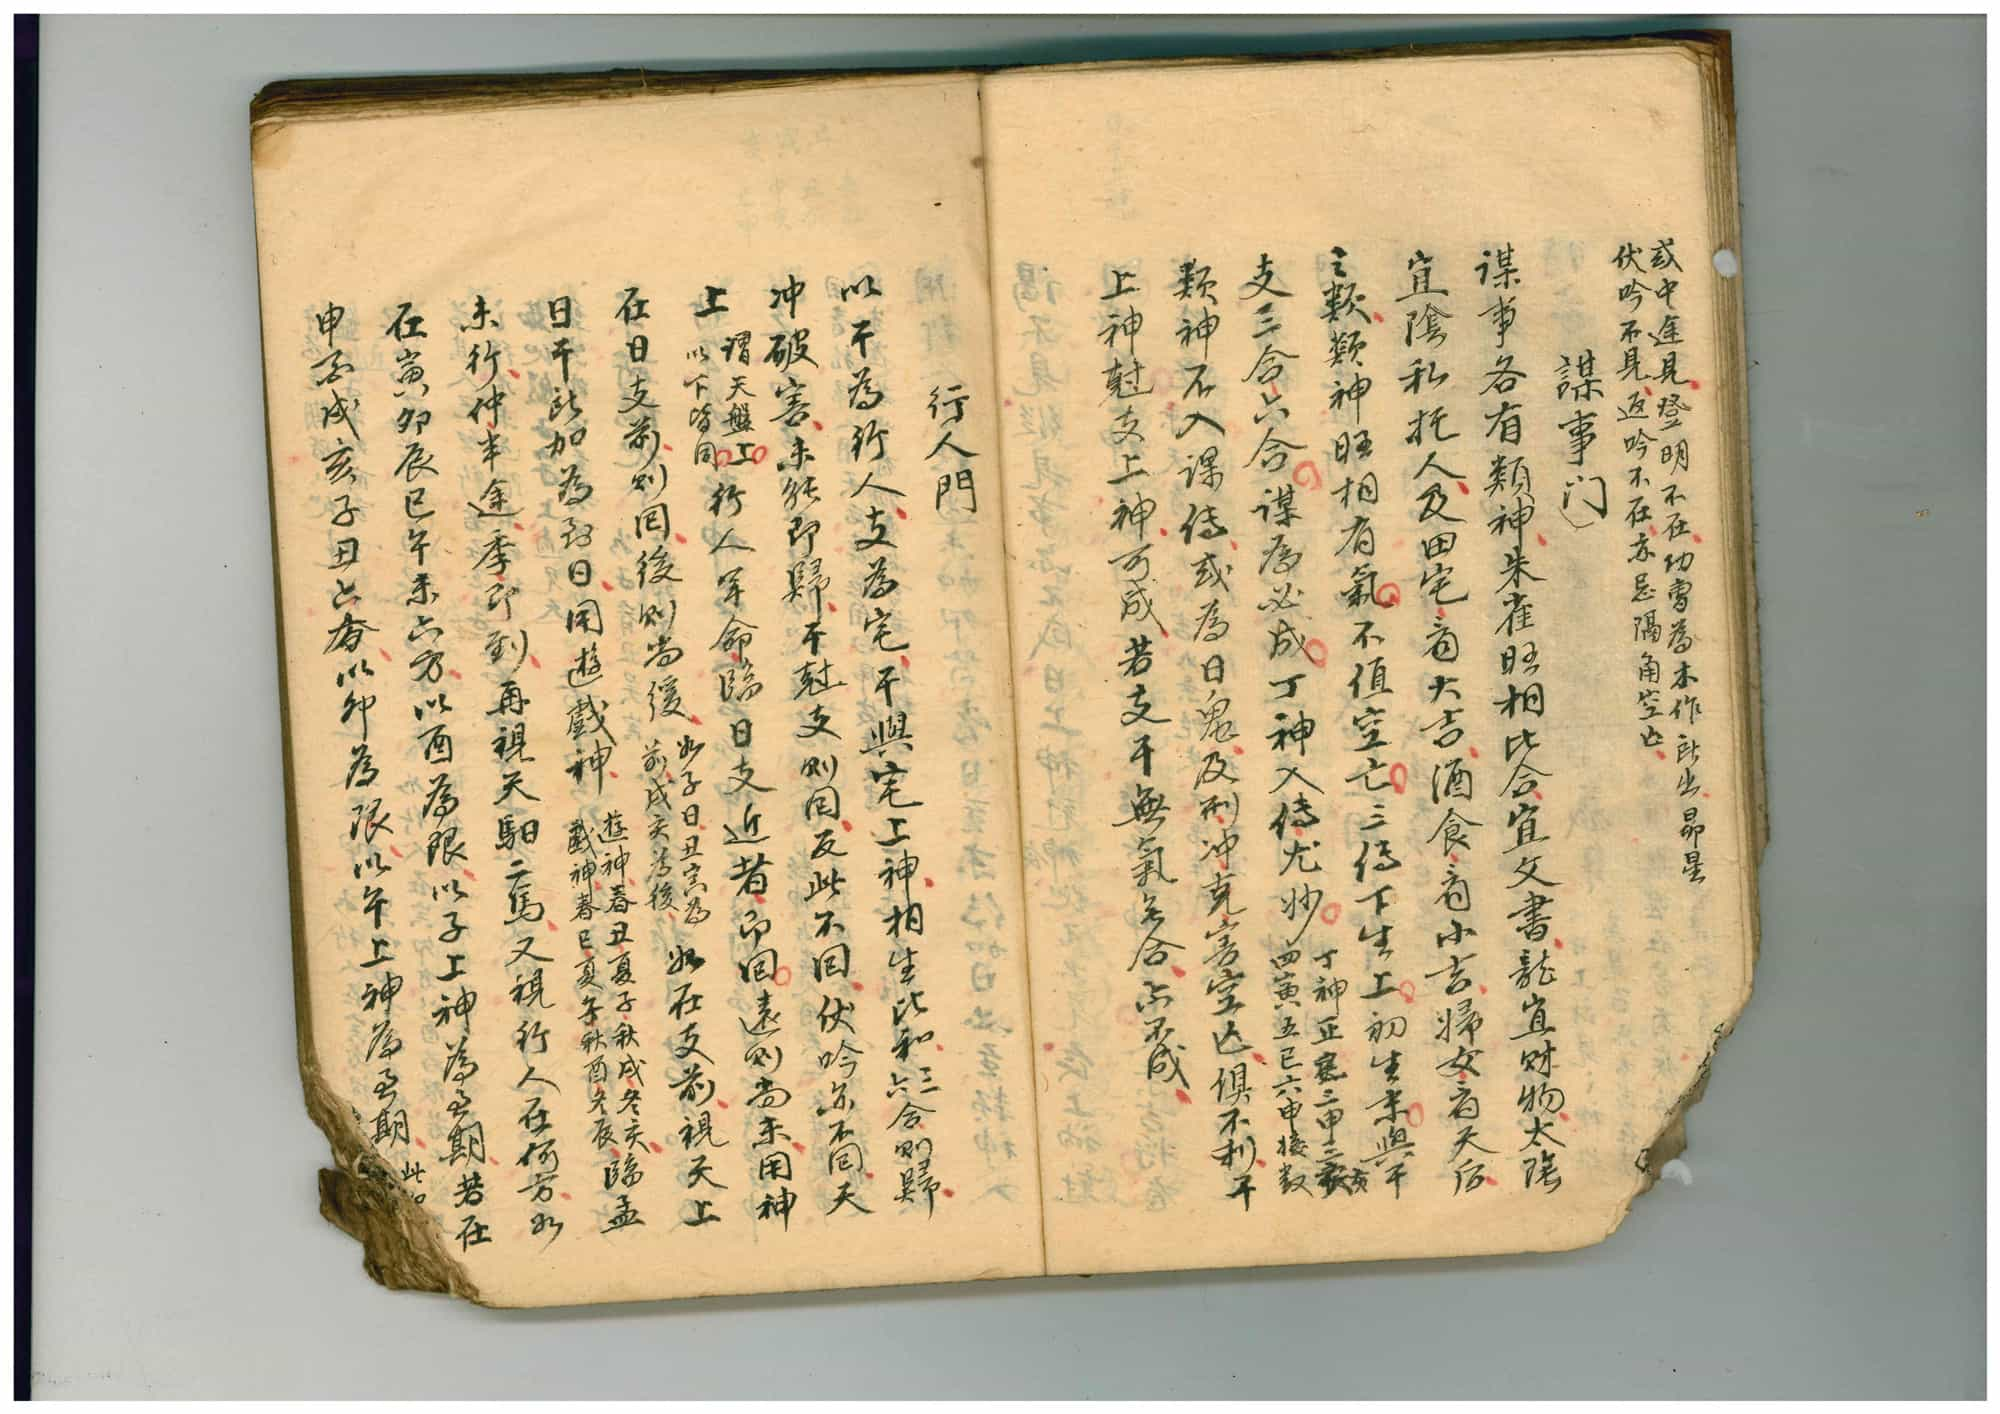 或中途見登明不在功曹為木作此出昴星
伏吟不見返吟不在亦忌隔角空亡
謀事门
謀事各有類神朱雀旺相比合宜文書龍宜財物太陰
宜陰私托人及田宅看大吉酒食看小吉婦女看天后
之類類神旺相有氣不值空亡三傳下生上初生末與干
支三合六合謀為必成丁神入傳尤妙
丁神正二申三
四寅五巳六申
類神不入課傳或為日鬼及刑冲克害空亡俱不利干
上神尅支上神可成若支干無氣無合亦不成
行人門
以干為行人支為宅干與宅上神相生比和三六合則歸
冲破害未能即歸干尅支則囘反此不囘伏吟亦不囘天
上
謂天盤上
以下皆同
行人年命臨日支近者即囘遠則尚未用神
在日支前則囘後則尚緩
如子日丑寅為
前戌亥為後
如在支前視天上
日干所加為到日用遊戲神
遊神春丑夏子秋戌冬亥
戲神春巳夏午秋酉冬辰
臨孟
未行仲半途季即到再視天馹二馬又視行人在何方如
在寅卯辰巳午未六方以酉為限以子上神為至期若在
申酉戌亥子丑六處以卯為限以午上神為至期